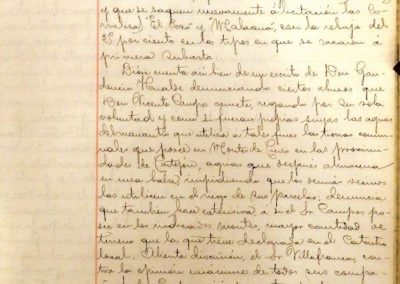 y que se saquen nuevamente á licitación las Co-
rralizas "El Pozo" y Malacena, con la rebaja del
25 por ciento en los tipos en que se sacaron á
primera subasta
Dióse cuenta también de un escrito de Don Gau-
dencio denunciando ciertos abusos que
Don Vicente Campo comete, regando por su sola
voluntad y como si fueran propias suyas las aguas
del que utiliza á tales fines las tierras comu-
nales que posee en Montes de en las proximi-
dades de Castejón, aguas que después almacena
en una balsa, impidiendo que los demás vecinos
las utilicen en el riego de sus parcelas; denuncia
que tambien hace extensiva á si el Sr. Campos po-
see en los indicados montes, mayor cantidad de
terreno que la que tiene declarada en el Catastro
local. discusión, el Sr. Villafranca, con-
tra la opinión unánime de todos sus compa-